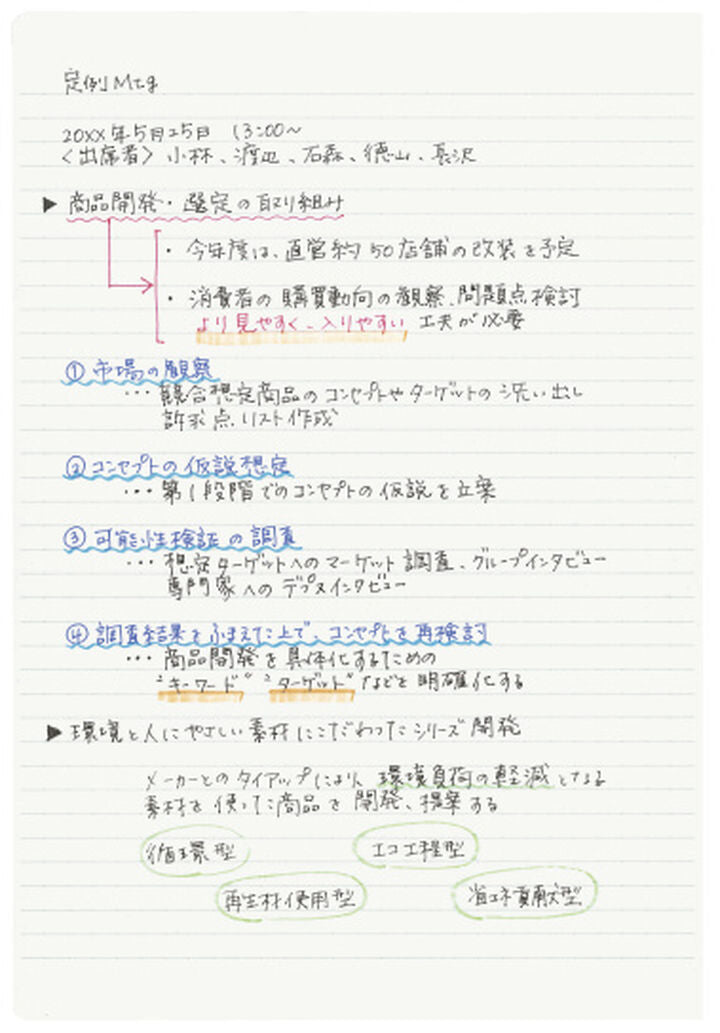 定例Mtg
20XX年5月25日 13:00〜
〈出席者〉小林、渡辺、石森、徳山、長沢
▶ 商品開発・選定の取り組み
・今年度は、直営約50店舗の改装を予定
・消費者の購買動向の観察、問題点検討
より見やすく、入りやすい 工夫が必要
① 市場の観察
… 競合想定商品のコンセプトやターゲットの洗い出し
訴求点リスト作成
② コンセプトの仮説想定
… 第1段階でのコンセプトの仮説を立案
③ 可能性検証の調査
… 想定ターゲットへのマーケット調査、グループインタビュー
専門家へのデプスインタビュー
④ 調査結果をふまえた上で、コンセプトを再検討
… 商品開発を具体化するための
"キーワード" "ターゲット"などを明確化する
▶ 環境と人にやさしい素材にこだわったシリーズ開発
メーカーとのタイアップにより、環境負荷の軽減となる
素材を使った商品を開発、提案する
循環型 エコ工程型
再生材使用型 省エネ貢献型